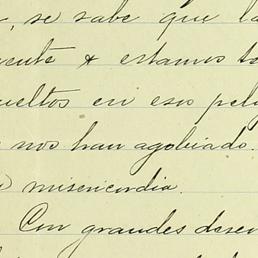 , se sabe que la
& estamos
en eso
nos han agobiado.
misericordia.
Con grandes deseo